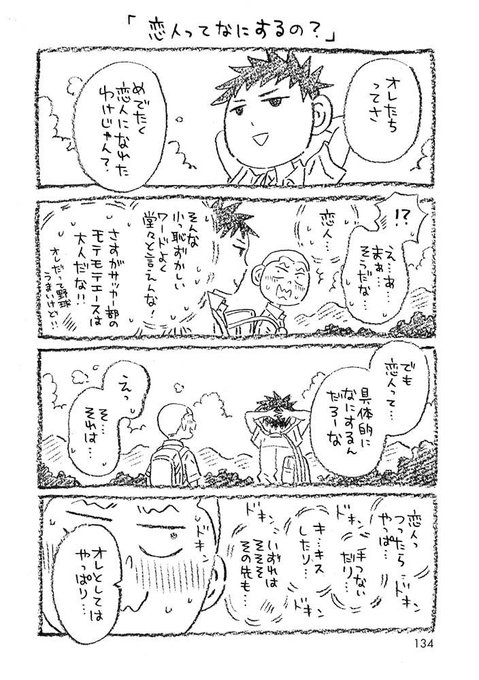 「恋人ってなにするの？」
オレたち
ってさ
めでたく
恋人になれた
わけじゃん？
!?
え…ぁ…
まぁ…
そうだな…
恋人…
そんな
小恥ずかしい
ワードよく
堂々と言えんな！
さすがサッカー部の
モテモテエースは
大人だな!!
オレだって野球
うまいけど!!
でも
恋人って…
具体的に
なにするん
だろーな
えっ
そ…
それは…
恋人っ
つったら
やっぱ…
ドキン
手つない
だり…
ドキン
ドキン
キ…キス
したり…
ドキン
いずれは
そそそ
その先も…
ドキン
オレとしては
やっぱり…
134